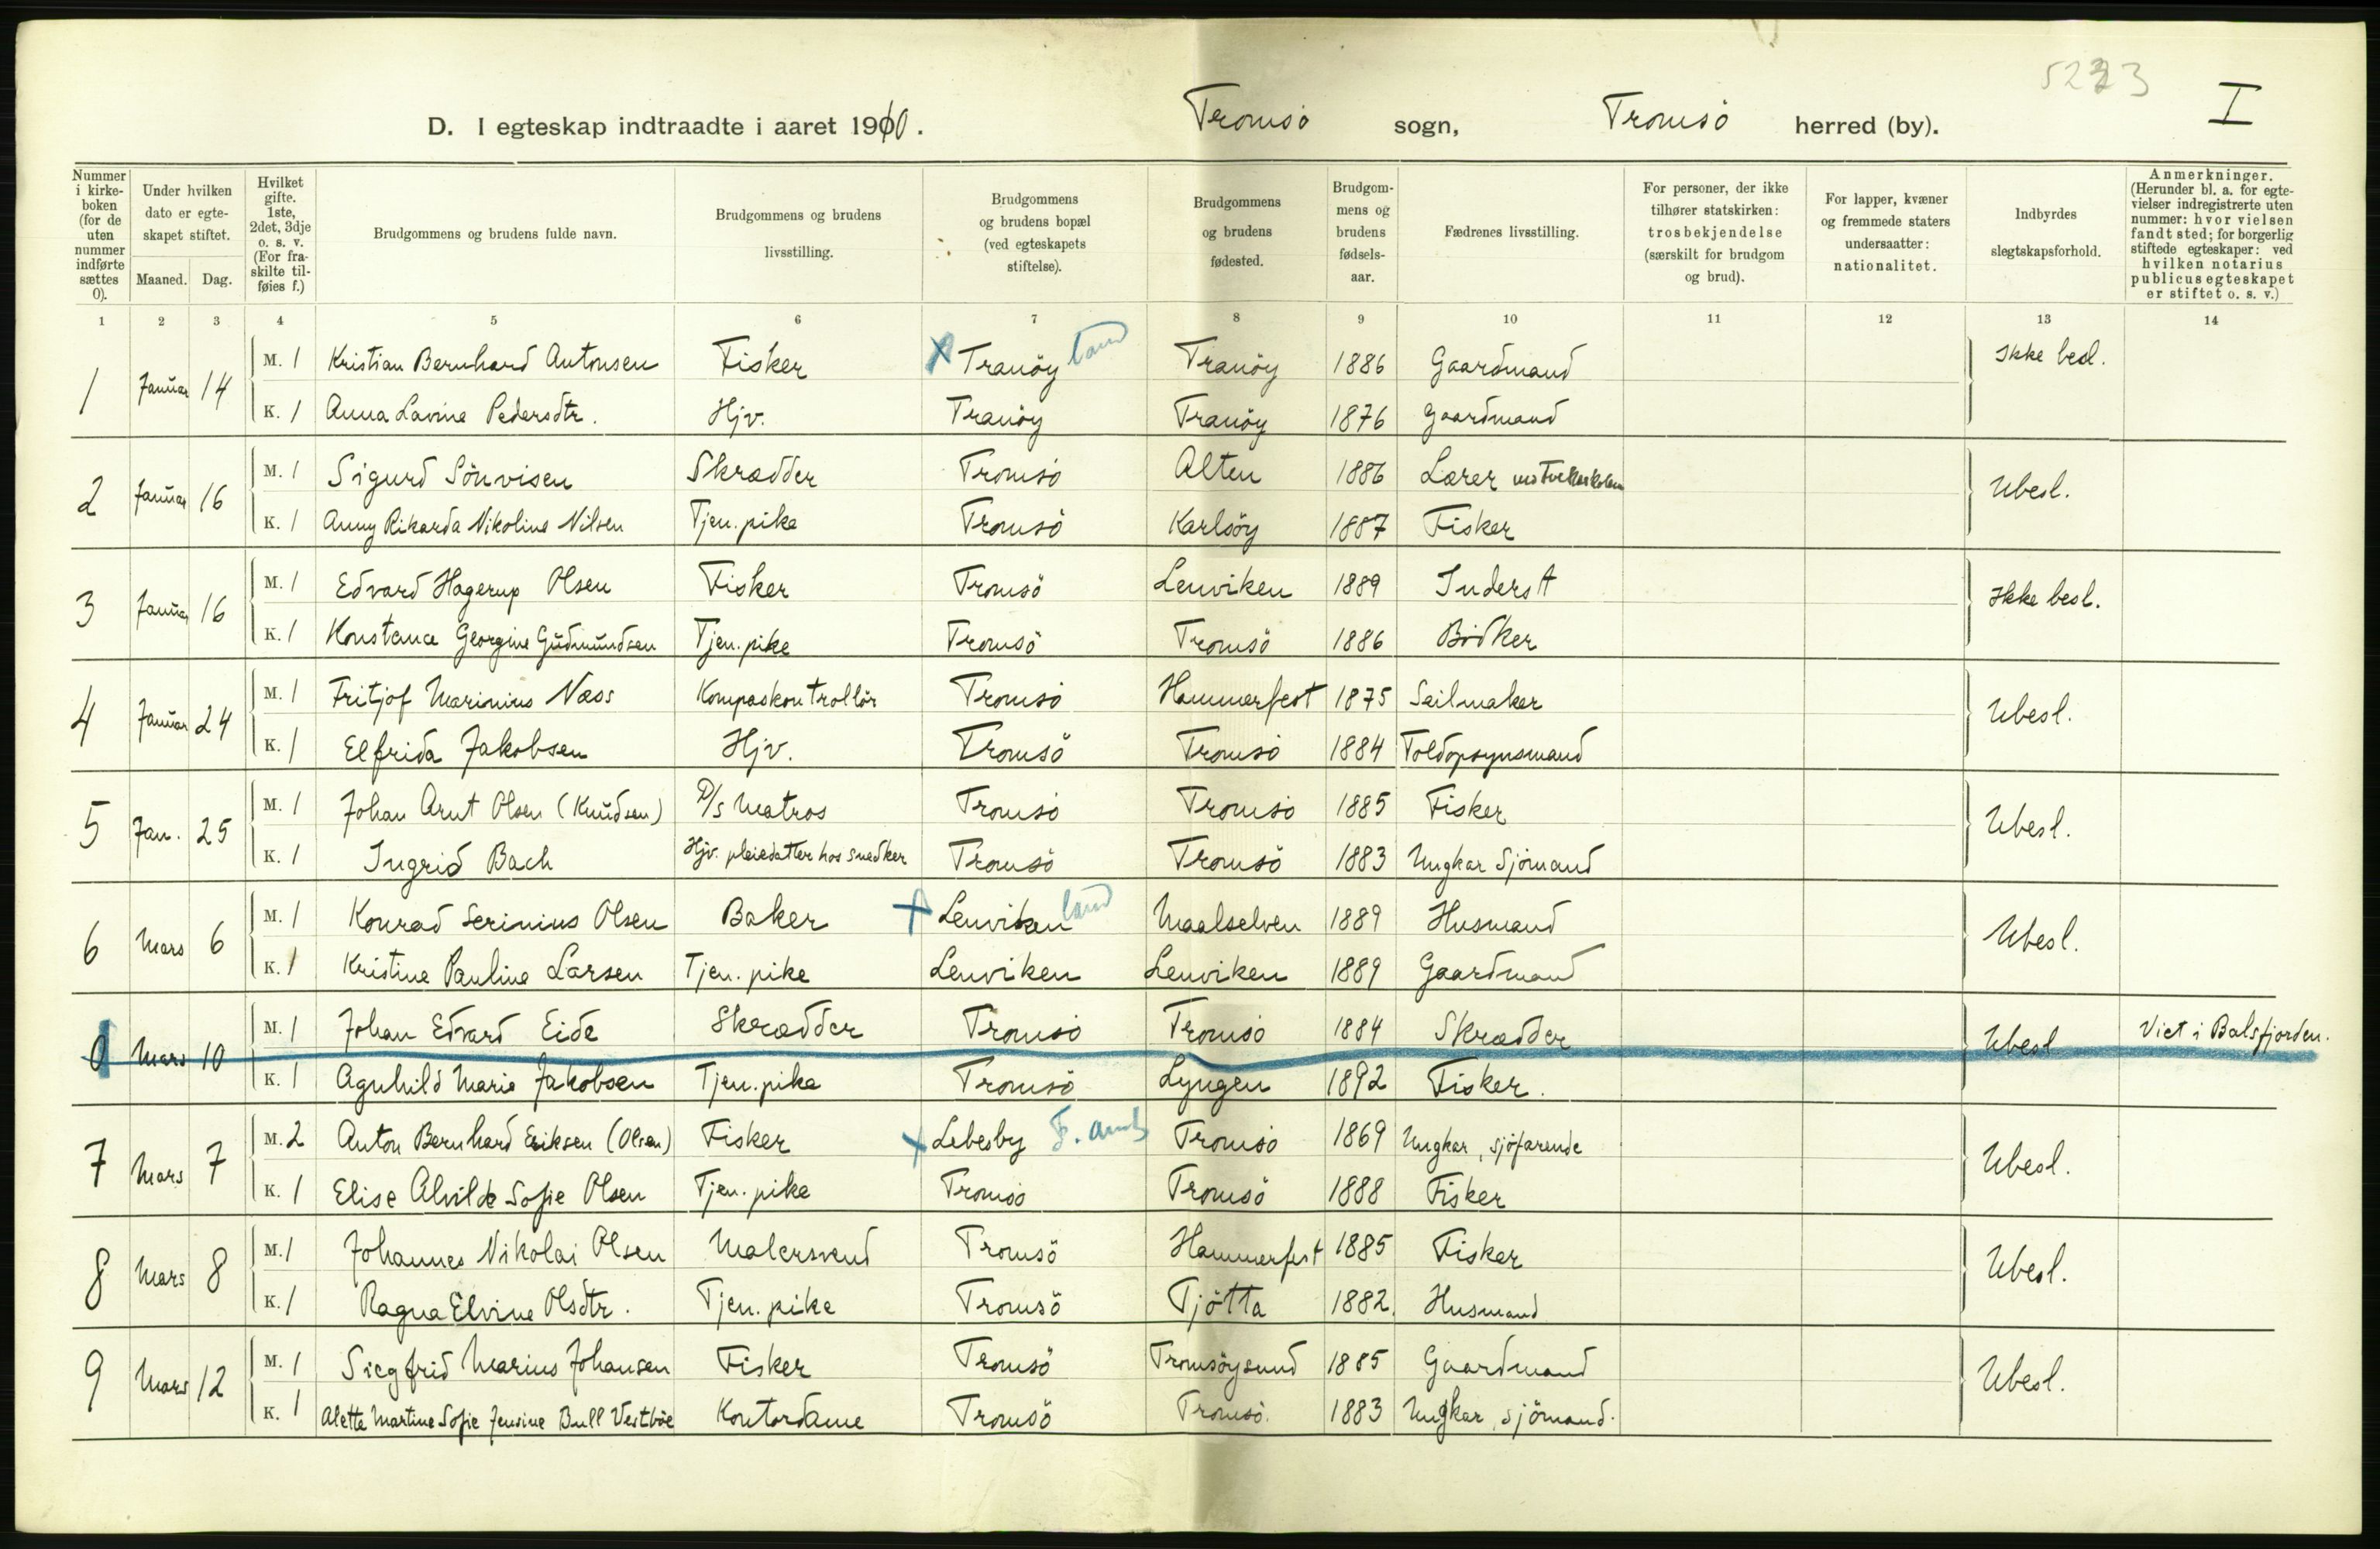 5223
I
D. I egteskap indtraadte i aaret 1910. Tromsö sogn, Tromsö herred (by).
Nummer i kirke-boken (for de uten nummer indførte sættes 0).
Under hvilken dato er egte-skapet stiftet.
Maaned. Dag.
Hvilket gifte. 1ste, 2det, 3dje o. s. v. (For fra-skilte til-føies f.)
Brudgommens og brudens fulde navn.
Brudgommens og brudens livsstilling.
Brudgommens og brudens bopæl (ved egteskapets stiftelse).
Brudgommens og brudens fødested.
Brudgom-mens og brudens fødsels-aar.
Fædrenes livsstilling.
For personer, der ikke tilhører statskirken: trosbekjendelse (særskilt for brudgom og brud).
For lapper, kvæner og fremmede staters undersaatter: nationalitet.
Indbyrdes slegtskapsforhold.
Anmerkninger. (Herunder bl. a. for egte-vielser indregistrerte uten nummer: hvor vielsen fandt sted; for borgerlig stiftede egteskaper: ved hvilken notarius publicus egteskapet er stiftet o. s. v.)
1 2 3 4 5 6 7 8 9 10 11 12 13 14
1 Januar 14 M. 1 Kristian Bernhard Antonsen Fisker X Tranöy land Tranöy 1886 Gaardmand Ikke besl.
K. 1 Anna Lavine Pedersdtr. Hjv. Tranöy Tranöy 1876 Gaardmand
2 Januar 16 M. 1 Sigurd Sönvisen Skrædder Tromsö Alten 1886 Lærer Ubesl.
K. 1 Anny Rikarda Nikoline Nilsen Tjen. pike Tromsö Karlsöy 1887 Fisker
3 Januar 16 M. 1 Edvard Hagerup Olsen Fisker Tromsö Lenviken 1889 Inderst Ikke besl.
K. 1 Konstance Georgine Gudmundsen Tjen. pike Tromsö Tromsö 1886 Bödker
4 Januar 24 M. 1 Fritjof Marinius Næss Kompaskontrollör Tromsö Hammerfest 1875 Seilmaker Ubesl.
K. 1 Elfrida Jakobsen Hjv. Tromsö Tromsö 1884 Toldopsynsmand
5 Jan. 25 M. 1 Johan Arnt Olsen (Knudsen) D/S Matros Tromsö Tromsö 1885 Fisker Ubesl.
K. 1 Ingrid Bach Hjv. pleiedatter hos snedker Tromsö Tromsö 1883 Ungkar Sjömand
6 Mars 6 M. 1 Konrad Serinius Olsen Baker + Lenviken land Maalselven 1889 Husmand Ubesl.
K. 1 Kristine Pauline Larsen Tjen. pike Lenviken Lenviken 1889 Gaardmand
0 Mars 10 M. 1 Johan Edvard Eide Skrædder Tromsö Tromsö 1884 Skrædder Ubesl Viet i Balsfjorden.
K. 1 Agnhild Marie Jakobsen Tjen. pike Tromsö Lyngen 1892 Fisker.
7 Mars 7 M. 2 Anton Bernhard Eriksen (Olsen) Fisker + Lebesby F. amt Tromsö 1869 Ungkar, sjöfarende Ubesl.
K. 1 Elise Alvilde Sofie Olsen Tjen. pike Tromsö Tromsö 1888 Fisker
8 Mars 8 M. 1 Johannes Nikolai Olsen Malersvend Tromsö Hammerfest 1885 Fisker Ubesl.
K. 1 Ragna Elvine Olsdtr. Tjen. pike Tromsö Tjötta 1882. Husmand
9 Mars 12 M. 1 Siegfrid Marius Johansen Fisker Tromsö Tromsöysund 1885 Gaardmand Ubesl.
K. 1 Alette Martine Sofie Jensine Bull Vestböe Kontordame Tromsö Tromsö. 1883 Ungkar, sjömand.